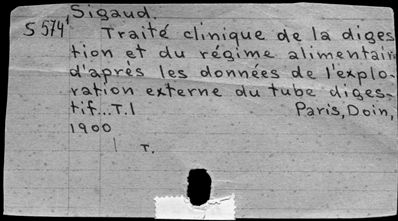 Sigaud.
S 574' Traité clinique de la diges
tion et du régime alimentair
d'après les données de l'explo-
ration externe du tube diges-
tif...T.I Paris, Doin,
1900
| T.